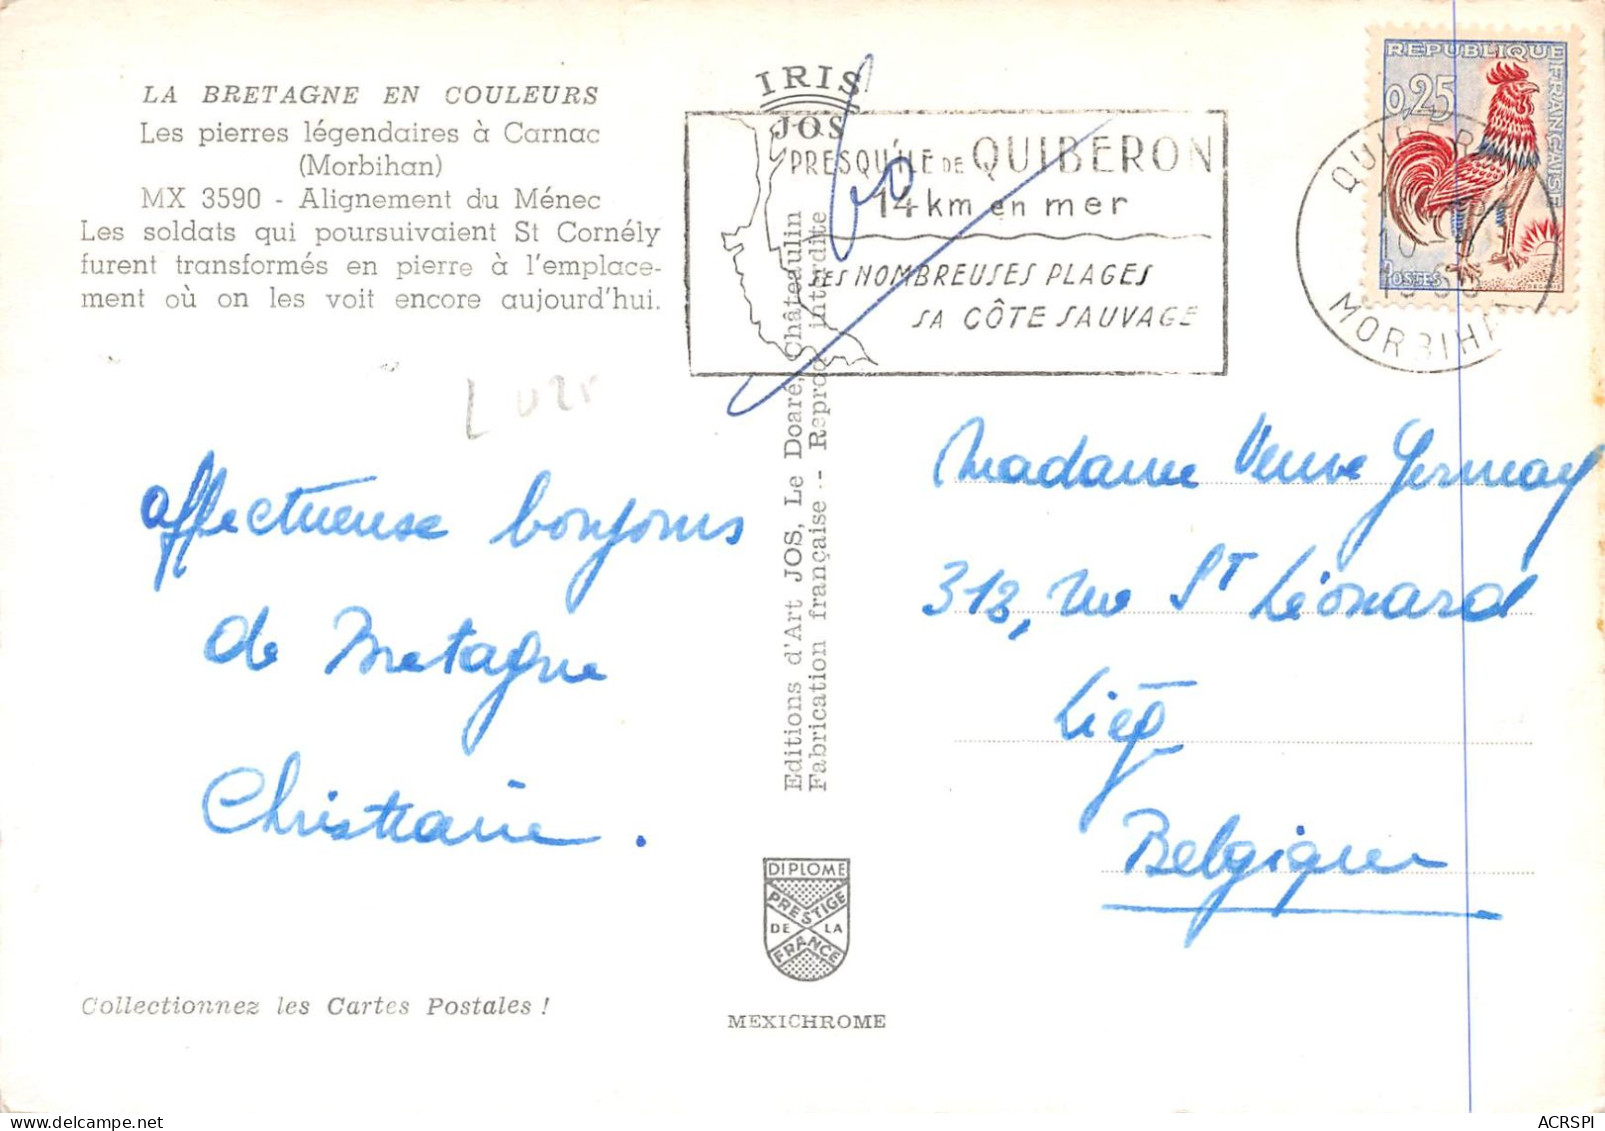 LA BRETAGNE EN COULEURS
Les pierres légendaires à Carnac
(Morbihan)
MX 3590 - Alignement du Ménec
Les soldats qui poursuivaient St Cornély
furent transformés en pierre à l'emplace-
ment où on les voit encore aujourd'hui.
affectueuse bonjours
de Bretagne
Christiane.
Collectionnez les Cartes Postales !
IRIS
JOS
PRESQU'ILE DE QUIBERON
14 km en mer
SES NOMBREUSES PLAGES
SA CÔTE SAUVAGE
Editions d'Art JOS, Le Doaré, Châteaulin
Fabrication française - Reprod. interdite
DIPLOME
PRESTIGE
DE LA
FRANCE
MEXICHROME
REPUBLIQUE FRANÇAISE
0,25
POSTES
QUIBERON
MORBIHAN
Madame Veuve Germay
318, rue St Léonard
Liég
Belgique
ACRSPI